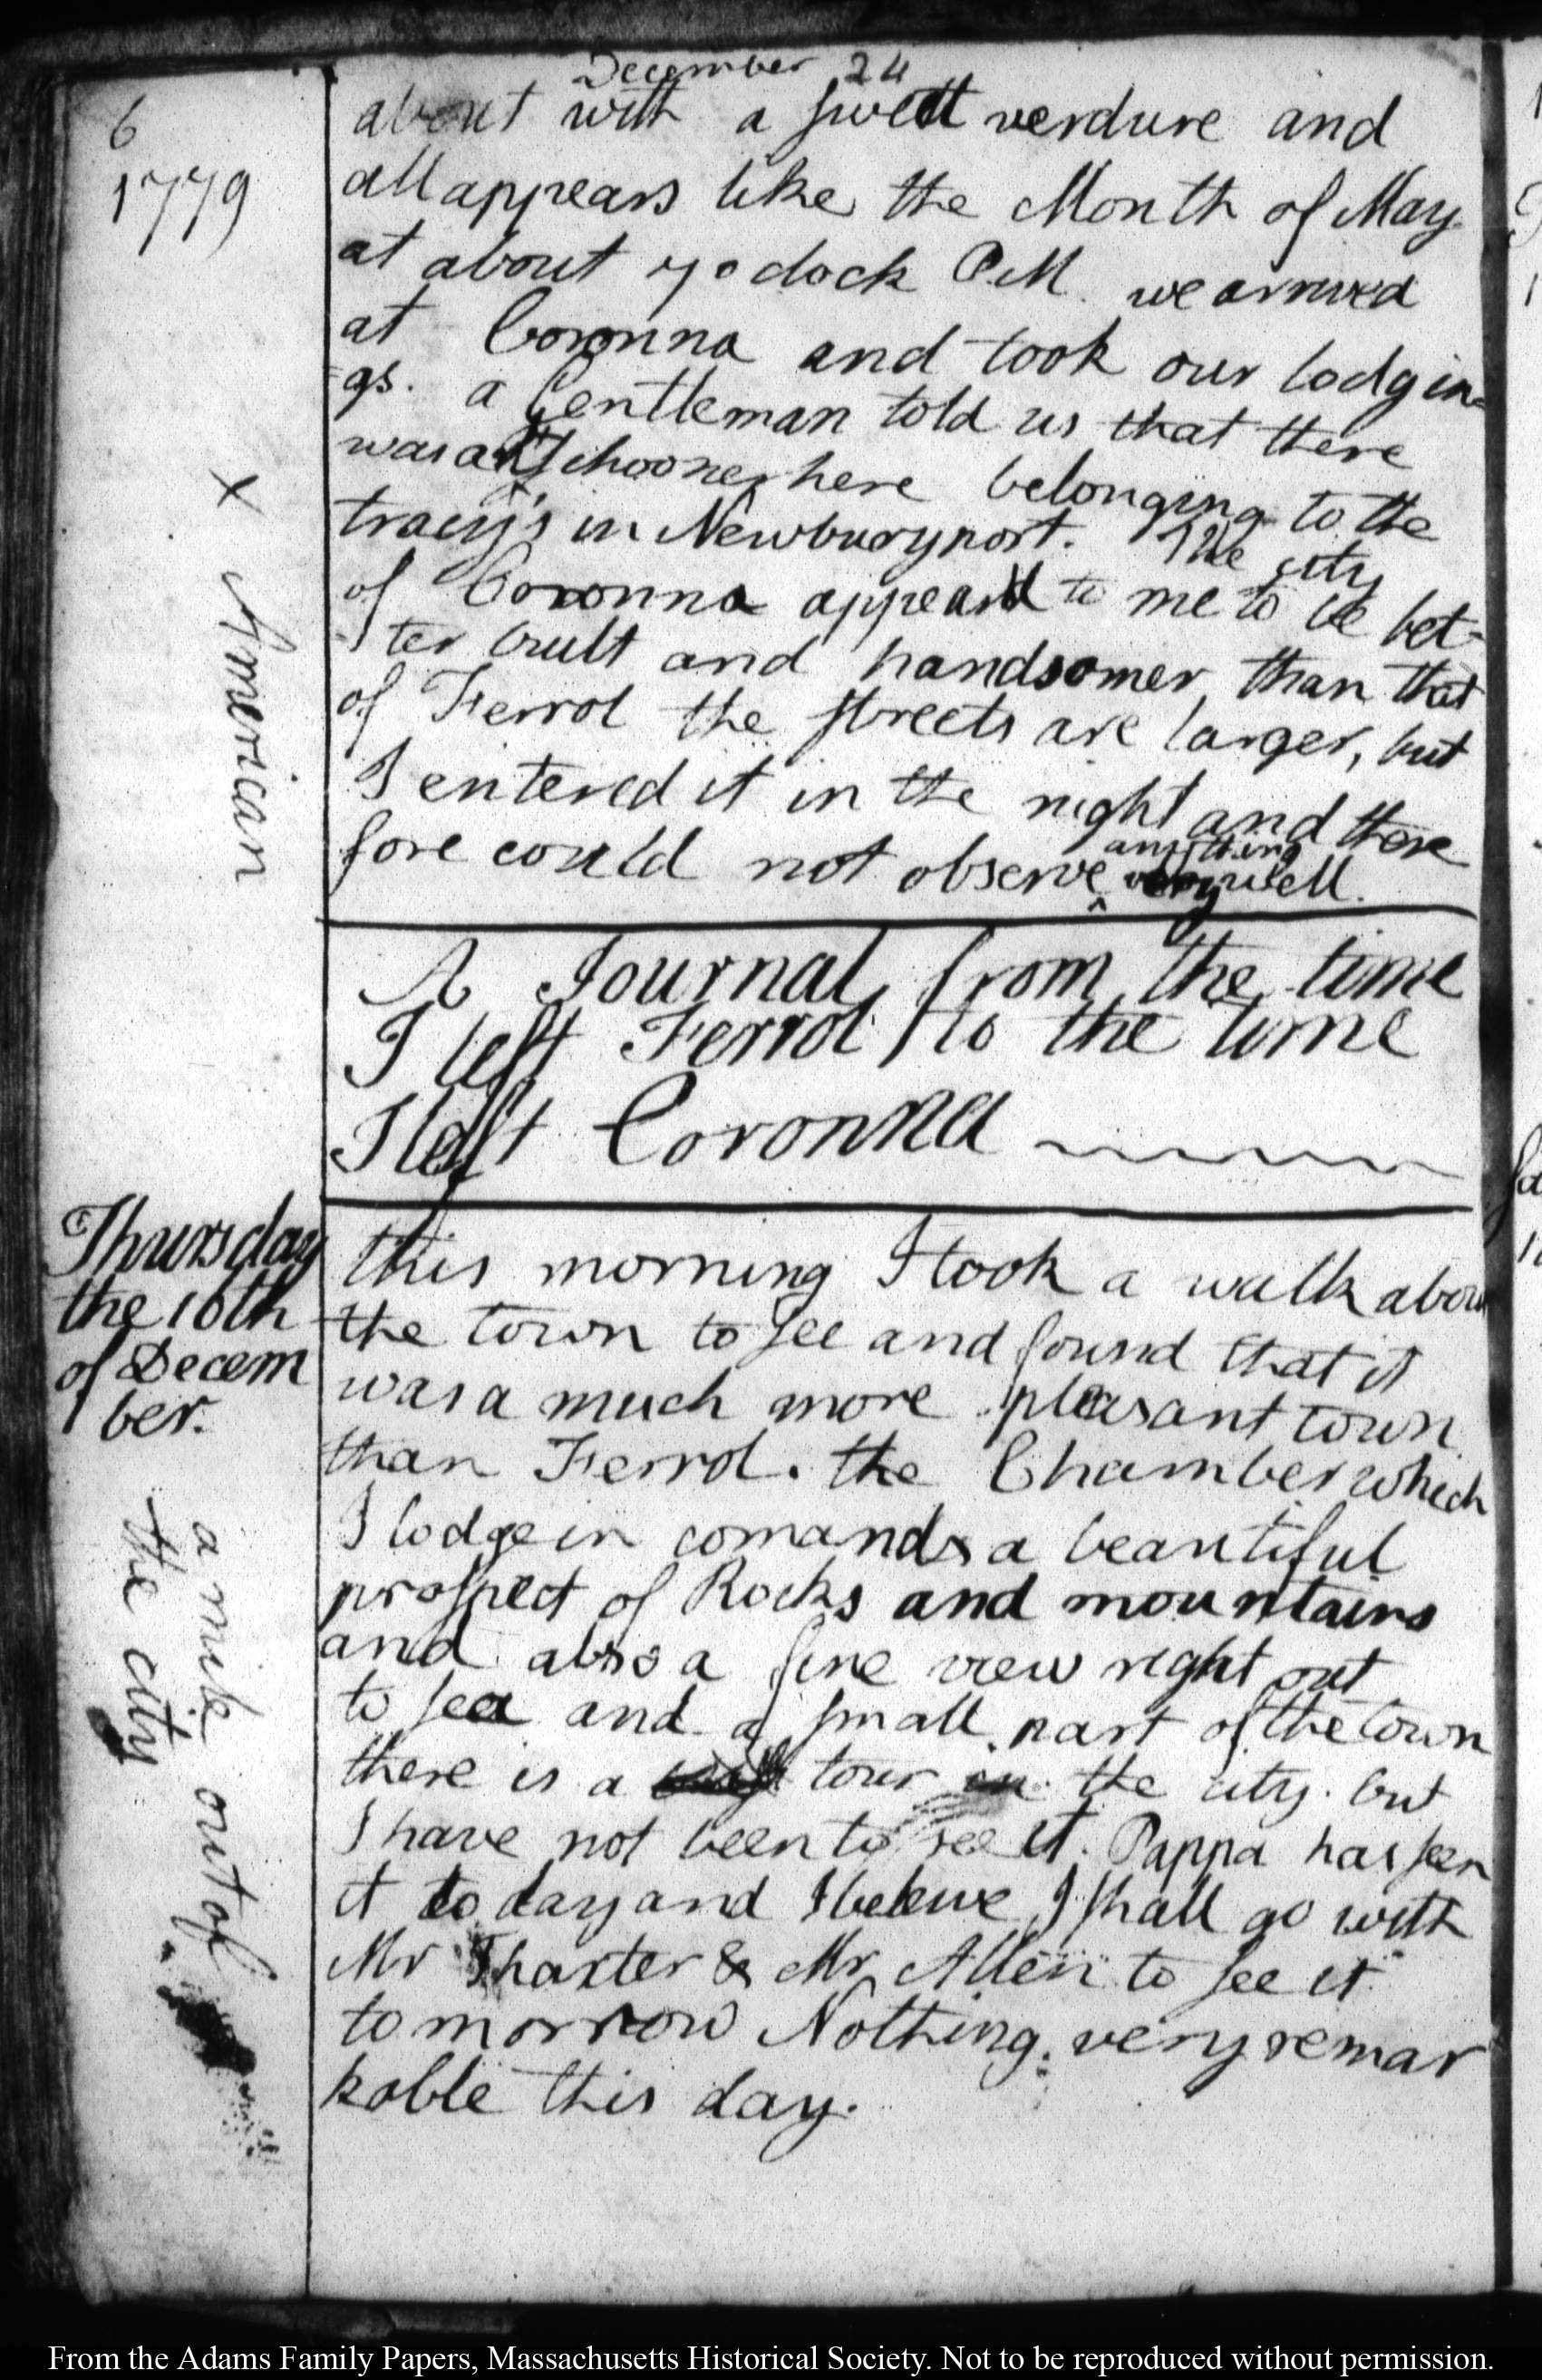 December 24
6
1779
about with a sweet verdure and
all appears like the Month of May
at about 7 o clock P.M. we arrived
at Coronna and took our lodgin=
=gs. a Gentleman told us that there
was a Schooner here belonging to the
tracey's in Newburyport. The city
of Coronna appeard to me to be bet-
ter built and handsomer than that
of Ferrol the streets are larger, but
I entered it in the night and there
anything
fore could not observe ^ very well.
x American
A Journal from the time
I left Ferrol to the time
I left Coronna
Thursday
the 16th
of Decem
ber.
this morning I took a walk abou
the town to see and found that it
was a much more pleasant town
than Ferrol. the Chamber which
I lodge in comands a beautiful
prospect of Rocks and mountains
and also a fine view right out
to sea and a small part of the town
there is a tour the city. but
I have not been to see it. Pappa has seen
it to day and I beleive I shall go with
Mr Thaxter & Mr Allen to see it
tomorrow Nothing very remar
kable this day.
a mile out of
the city
From the Adams Family Papers, Massachusetts Historical Society. Not to be reproduced without permission.